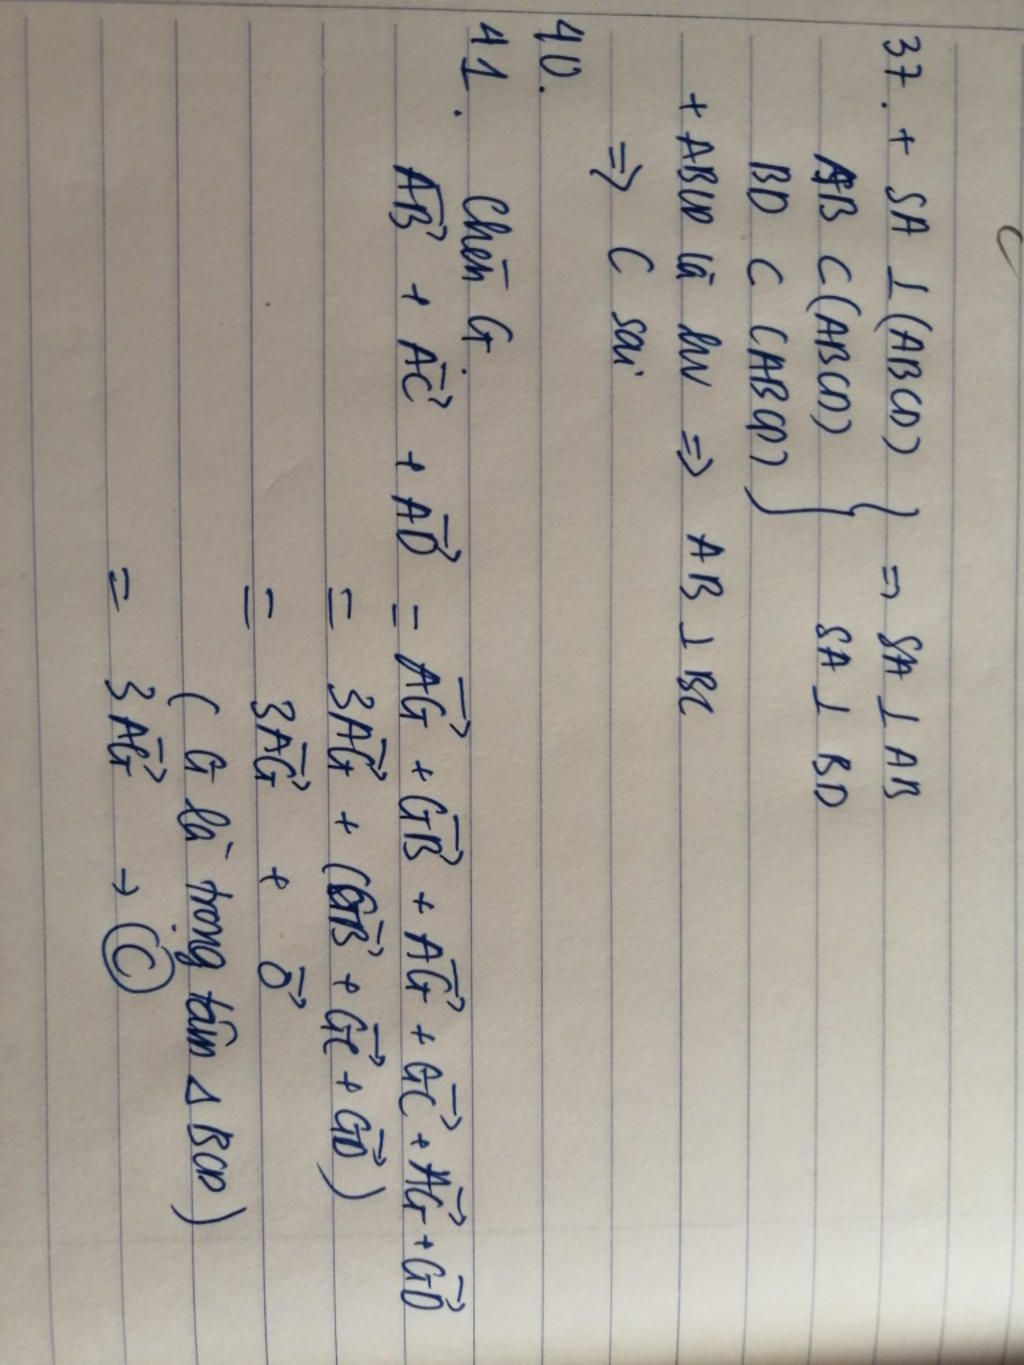 37. + SA ⊥ (ABCD) } => SA ⊥ AB
AB ⊂ (ABCD) } SA ⊥ BD
BD ⊂ (ABCD) }
+ ABCD là hv => AB ⊥ BC
=> C sai
40.
41. Chèn G.
AB→ + AC→ + AD→ = AG→ + GB→ + AG→ + GC→ + AG→ + GD→
= 3AG→ + (GB→ + GC→ + GD→)
= 3AG→ + 0→
(G là trọng tâm Δ BCD)
= 3AG→ → C